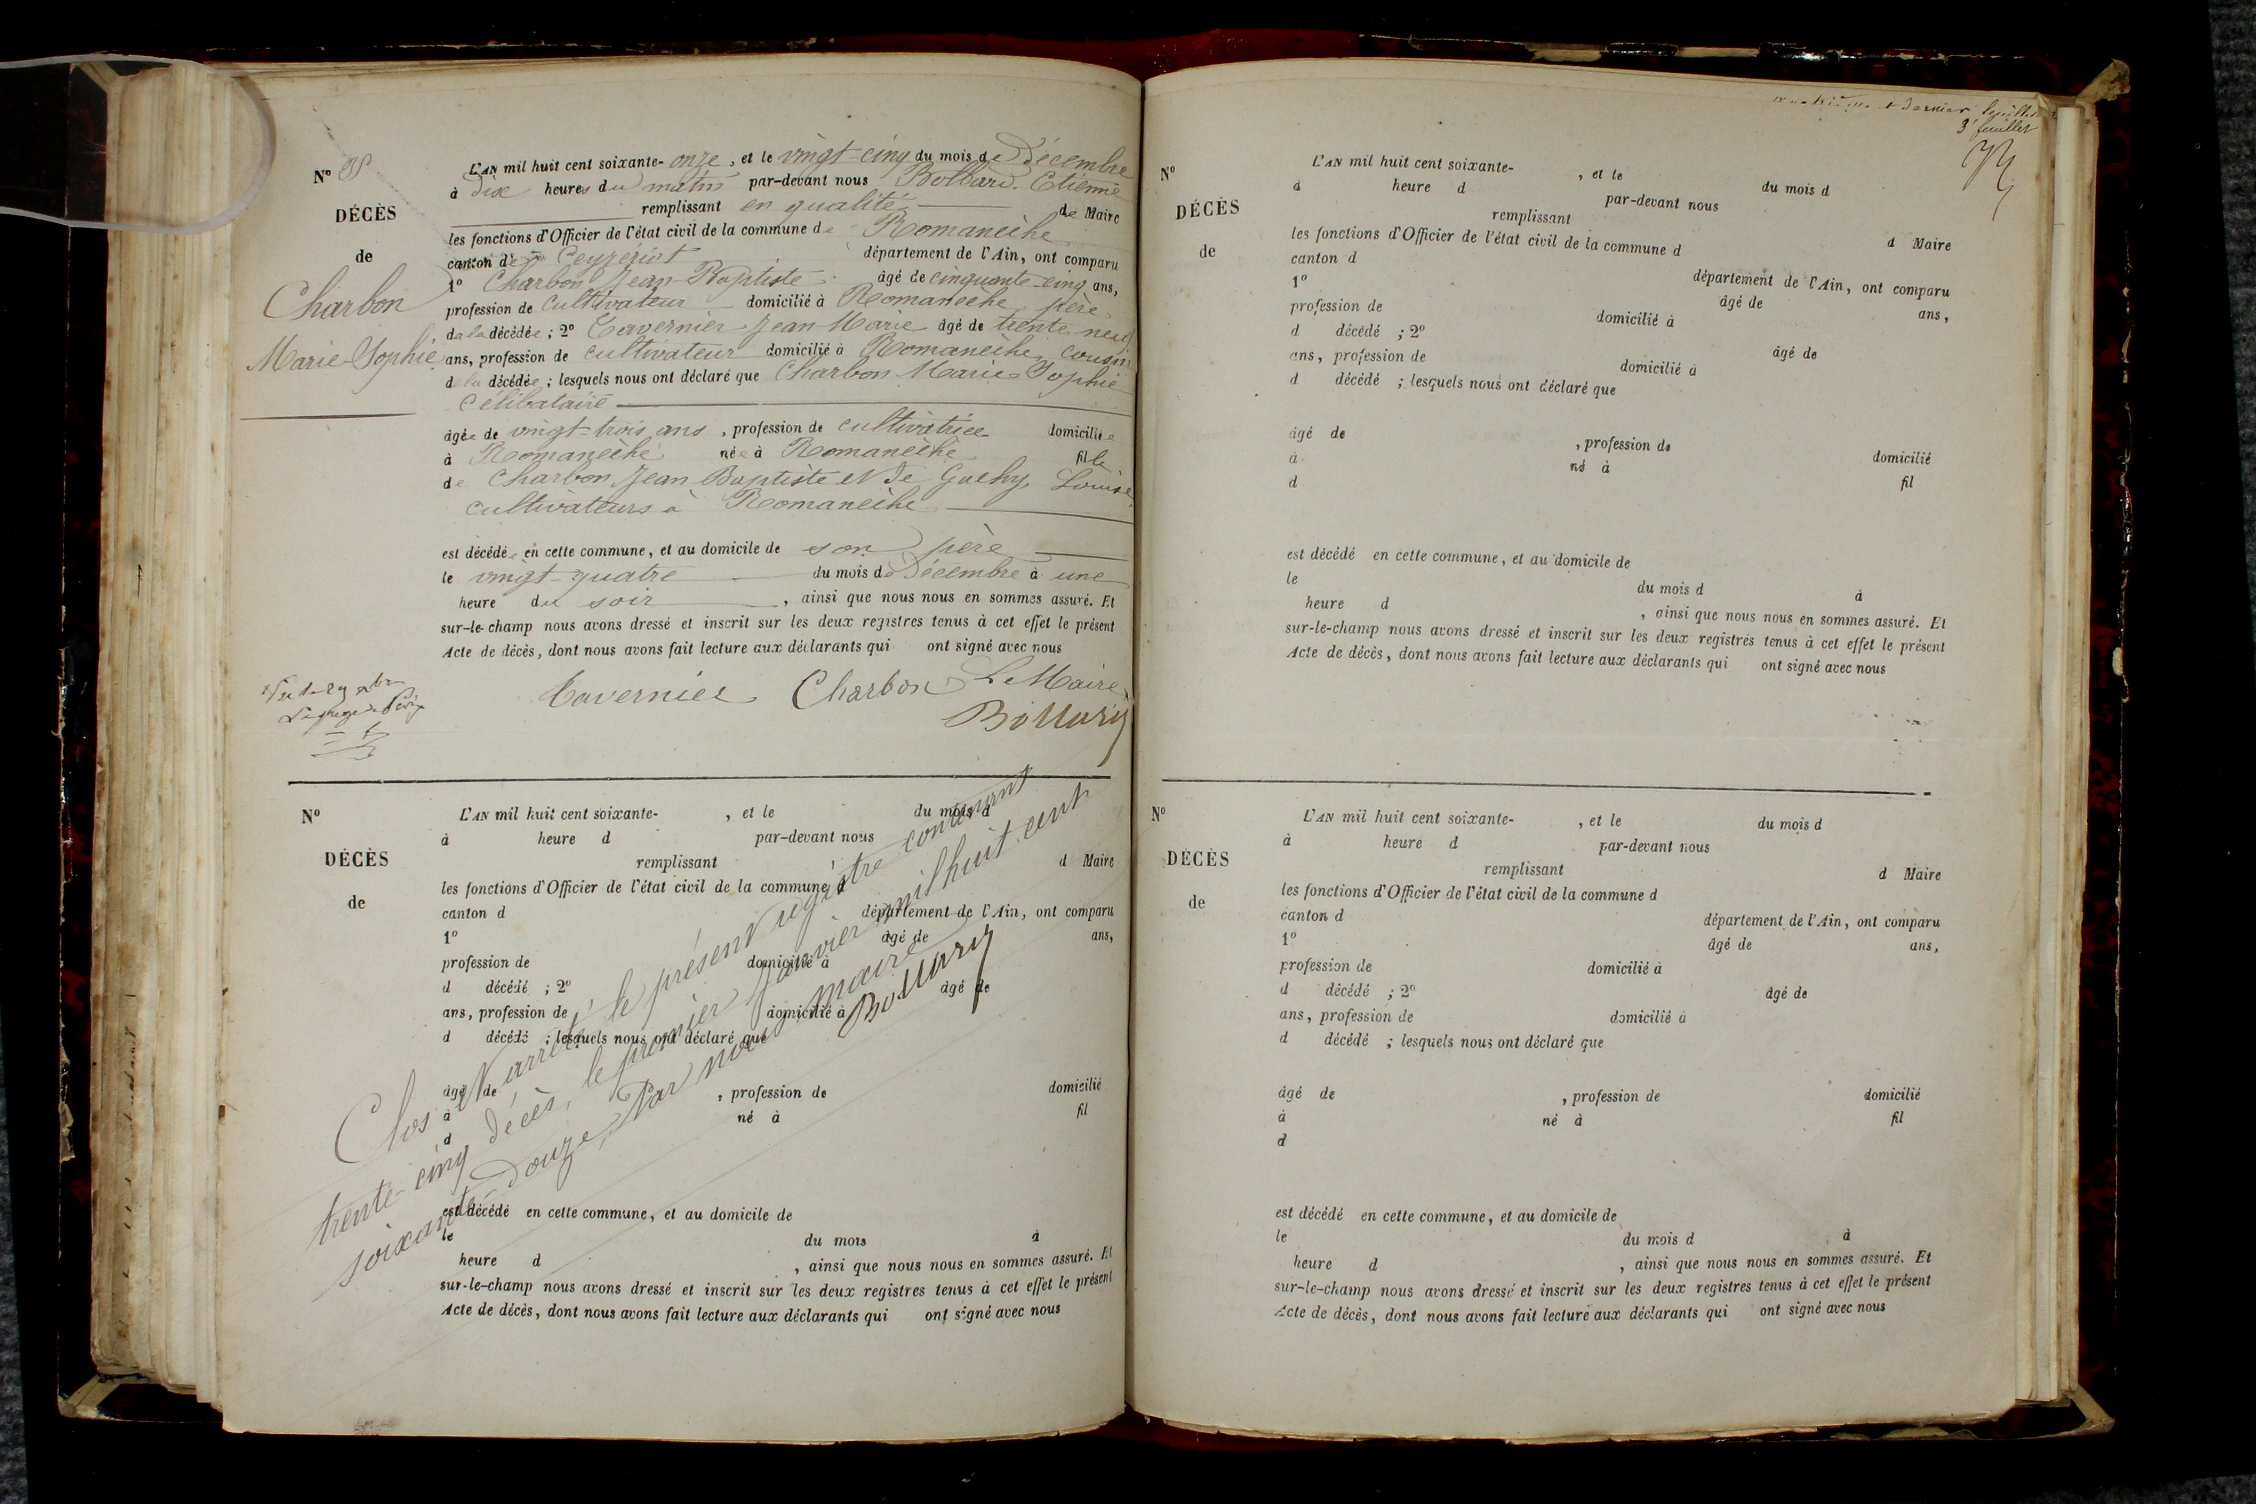 N° 35
DÉCÈS
de
Charbon
Marie-Sophie
L'AN mil huit cent soixante-onze, et le vingt-cinq du mois de Décembre
à dix heures du matin par-devant nous Bollard Etienne
remplissant en qualité de Maire
les fonctions d'Officier de l'état civil de la commune de Romanèche
canton de Ceyzériat département de l'Ain, ont comparu
1° Charbon Jean-Baptiste âgé de cinquante-cinq ans,
profession de cultivateur domicilié à Romanèche, père
de la décédée ; 2° Tavernier Jean-Marie âgé de trente-neuf
ans, profession de cultivateur domicilié à Romanèche, cousin
de la décédée ; lesquels nous ont déclaré que Charbon Marie-Sophie
célibataire
âgée de vingt-trois ans, profession de cultivatrice domiciliée
à Romanèche née à Romanèche fille
de Charbon Jean Baptiste et de Louise
cultivateurs à Romanèche
est décédée en cette commune, et au domicile de son père
le vingt-quatre du mois de Décembre à une
heure du soir, ainsi que nous nous en sommes assuré. Et
sur-le-champ nous avons dressé et inscrit sur les deux registres tenus à cet effet le présent
Acte de décès, dont nous avons fait lecture aux déclarants qui ont signé avec nous
Tavernier Charbon Le Maire
Bollard
N°
DÉCÈS
de
L'AN mil huit cent soixante- , et le du mois d
à heure d par-devant nous
remplissant d Maire
les fonctions d'Officier de l'état civil de la commune d
canton d département de l'Ain, ont comparu
1° âgé de ans,
profession de domicilié à
d décédé ; 2° âgé de
ans, profession de domicilié à
d décédé ; lesquels nous ont déclaré que
âgé de , profession de domicilié
à né à fil
d
est décédé en cette commune, et au domicile de
le du mois à
heure d , ainsi que nous nous en sommes assuré. Et
sur-le-champ nous avons dressé et inscrit sur les deux registres tenus à cet effet le présent
Acte de décès, dont nous avons fait lecture aux déclarants qui ont signé avec nous
Clos et arrêté le présent registre contenant
trente-cinq décès, le premier Janvier mil huit cent
soixante douze, Par nous, maire
Bollard
dernier feuillet
3e feuillet
N°
DÉCÈS
de
L'AN mil huit cent soixante- , et le du mois d
à heure d par-devant nous
remplissant d Maire
les fonctions d'Officier de l'état civil de la commune d
canton d département de l'Ain, ont comparu
1° âgé de ans,
profession de domicilié à
d décédé ; 2° âgé de
ans, profession de domicilié à
d décédé ; lesquels nous ont déclaré que
âgé de , profession de domicilié
à né à fil
d
est décédé en cette commune, et au domicile de
le du mois d à
heure d , ainsi que nous nous en sommes assuré. Et
sur-le-champ nous avons dressé et inscrit sur les deux registres tenus à cet effet le présent
Acte de décès, dont nous avons fait lecture aux déclarants qui ont signé avec nous
N°
DÉCÈS
de
L'AN mil huit cent soixante- , et le du mois d
à heure d par-devant nous
remplissant d Maire
les fonctions d'Officier de l'état civil de la commune d
canton d département de l'Ain, ont comparu
1° âgé de ans,
profession de domicilié à
d décédé ; 2° âgé de
ans, profession de domicilié à
d décédé ; lesquels nous ont déclaré que
âgé de , profession de domicilié
à né à fil
d
est décédé en cette commune, et au domicile de
le du mois d à
heure d , ainsi que nous nous en sommes assuré. Et
sur-le-champ nous avons dressé et inscrit sur les deux registres tenus à cet effet le présent
Acte de décès, dont nous avons fait lecture aux déclarants qui ont signé avec nous